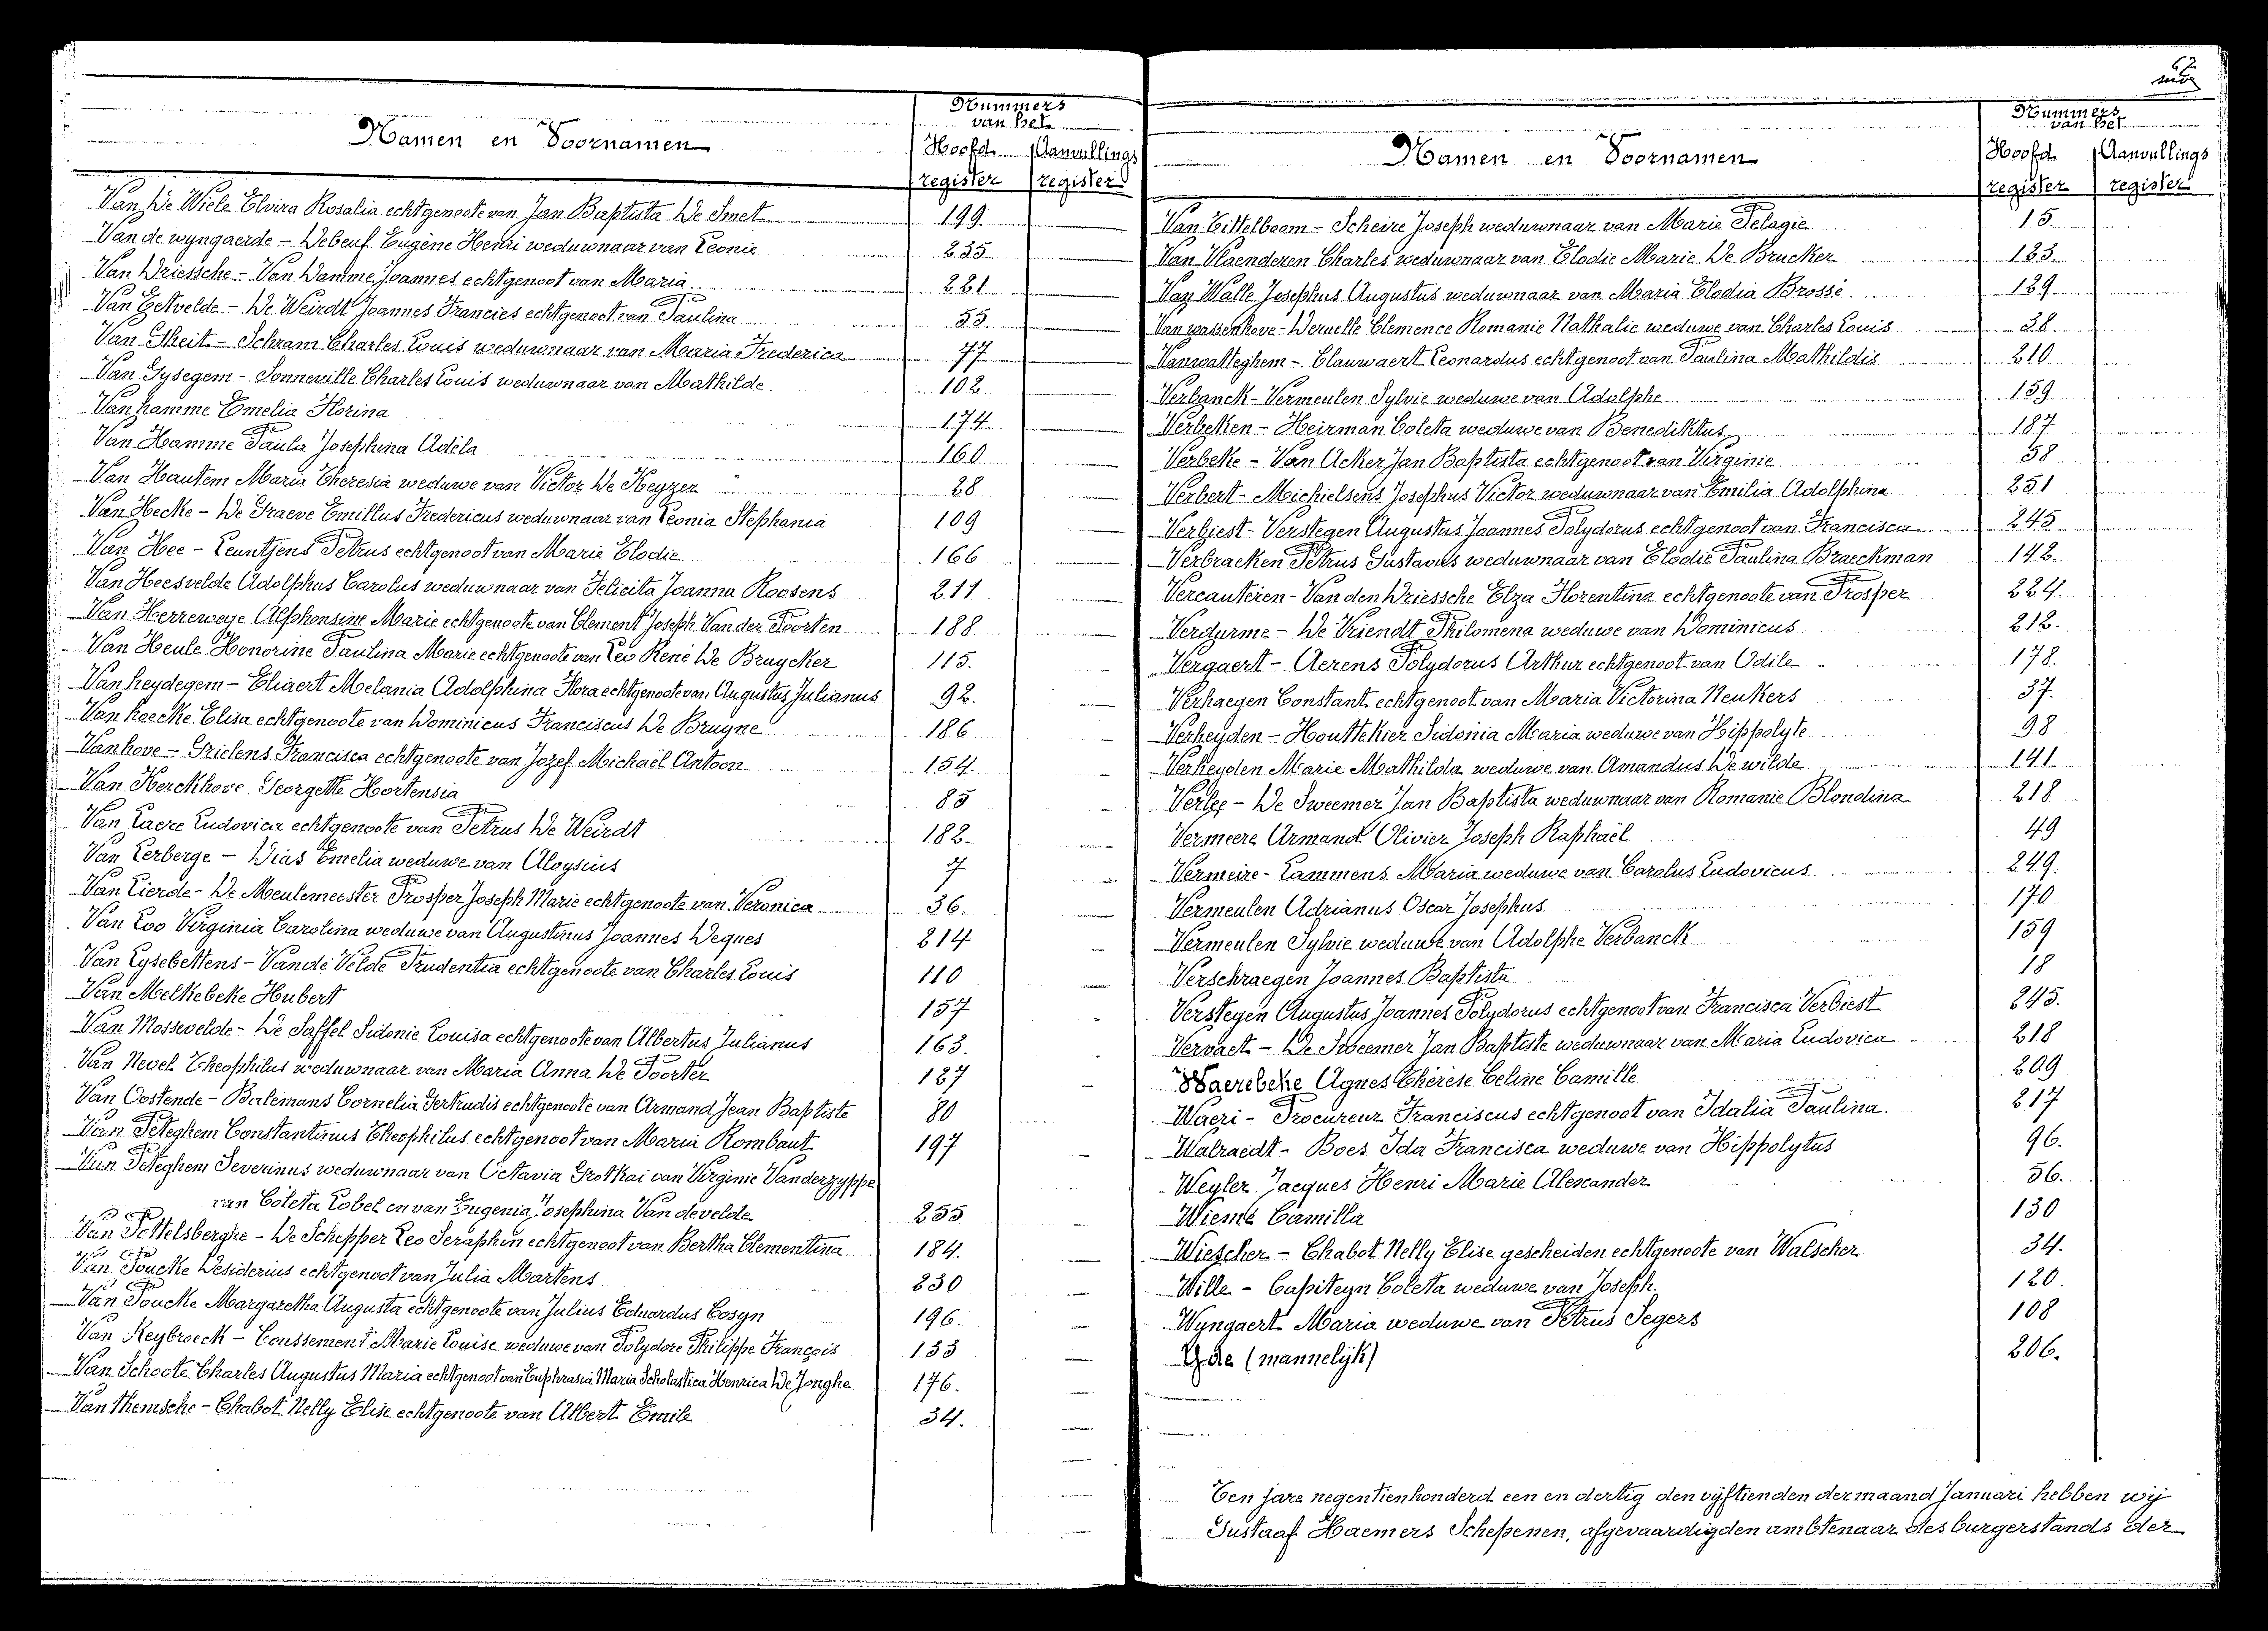 Nummers
van het
Namen en Voornamen
Hoofd Aanvullings
register register
Van de Wiele Elvira Rosalia echtgenoote van Jan Baptista De Smet 199.
Van de wyngaerde - Debeuf Eugène Henri weduwnaar van Leonie 235.
Van Driessche - Van Damme Joannes echtgenoot van Maria 221
Van Eetvelde - De Weirdt Joannes Francies echtgenoot van Paulina 55.
Van Gheit - Schram Charles Louis weduwnaar van Maria Frederica 77
Van Gysegem - Sonneville Charles Louis weduwnaar van Mathilde 102
Vanhamme Emelia Florina 174.
Van Hamme Paula Josephina Adéla 160
Van Hautem Maria Theresia weduwe van Victor De Keyzer 28
Van Hecke - De Graeve Emillus Fredericus weduwnaar van Leonia Stephania 109
Van Hee - Leuntjens Petrus echtgenoot van Marie Elodie 166
Van Heesvelde Adolphus Carolus weduwnaar van Felicita Joanna Roosens 211
Van Herreweye Alphonsine Marie echtgenoote van Clement Joseph Van der Poorten 188
Van Heule Honorine Paulina Marie echtgenoote van Leo René De Bruycker 115.
Van heydegem - Eliaert Melania Adolphina Flora echtgenoote van Augustus Julianus 92.
Van hoecke Elisa echtgenoote van Dominicus Franciscus De Bruyne 186
Vanhove - Grielens Francisca echtgenoote van Jozef Michaël Antoon 154.
Van Kerckhove Georgette Hortensia 85
Van Laere Ludovica echtgenoote van Petrus De Weirdt 182.
Van Lerberge - Dias Emelia weduwe van Aloysius 7
Van Lierde - De Meulemeester Prosper Joseph Marie echtgenoote van Veronica 36.
Van Loo Virginia Carolina weduwe van Augustinus Joannes Deques 214
Van Lysebettens - Van de Velde Prudentia echtgenoote van Charles Louis 110
Van Melkebeke Hubert 157
Van Mossevelde - De Saffel Sidonie Louisa echtgenoote van Albertus Julianus 163.
Van Nevel Theophilus weduwnaar van Maria Anna De Poorter 127
Van Oostende - Balemans Cornelia Gertrudis echtgenoote van Armand Jean Baptiste 80
Van Peteghem Constantinus Theophilus echtgenoot van Maria Rombaut 197
Van Peteghem Severinus weduwnaar van Octavia Grothai van Virginie Vanderzyppe
van Coleta Lobel en van Eugenia Josephina Van de velde 255
Van Pottelsberghe - De Schepper Leo Seraphin echtgenoot van Bertha Clementina 184.
Van Poucke Desiderius echtgenoot van Julia Martens 230
Van Poucke Margaretha Augusta echtgenoote van Julius Eduardus Cosyn 196.
Van Reybroeck - Coussement Marie Louise weduwe van Polydore Philippe François 133
Van Schoote Charles Augustus Maria echtgenoot van Euphrasia Maria Scholastica Henrica De Jonghe 176.
Van Themsche - Chabot Nelly Elise echtgenoote van Albert Emile 34.
Nummers
van het
Namen en Voornamen
Hoofd Aanvullings
register register
Van Tittelboom - Scheire Joseph weduwnaar van Marie Pelagie 15.
Van Vlaenderen Charles weduwnaar van Elodie Marie De Brucker 123.
Van Walle Josephus Augustus weduwnaar van Maria Elodia Brossé 129
Van wassenhove - Deruelle Clemence Romanie Nathalie weduwe van Charles Louis 38
Vanwatteghem - Clauwaert Leonardus echtgenoot van Paulina Mathildis 210
Verbanck - Vermeulen Sylvie weduwe van Adolphe 159
Verbeken - Heirman Coleta weduwe van Benediktus 187
Verbeke - Van Acker Jan Baptista echtgenoot van Virginie 58
Verbert - Michielsens Josephus Victor weduwnaar van Emilia Adolphina 251
Verbiest - Verstegen Augustus Joannes Polydorus echtgenoot van Francisca 245
Verbracken Petrus Gustavus weduwnaar van Elodie Paulina Braeckman 142.
Vercauteren - Van den Driessche Elza Florentina echtgenoote van Prosper 224.
Verdurme - De Vriendt Philomena weduwe van Dominicus 212.
Vergaert - Aerens Polydorus Arthur echtgenoot van Odile 178.
Verhaegen Constant echtgenoot van Maria Victorina Neukers 37.
Verheyden - Houttekier Sidonia Maria weduwe van Hippolyte 98
Verheyden Marie Mathilda weduwe van Amandus De wilde 141.
Verlee - De Sweemer Jan Baptista weduwnaar van Romanie Blondina 218
Vermeere Armand Olivier Joseph Raphaël 49
Vermeire - Lammens Maria weduwe van Carolus Ludovicus 249.
Vermeulen Adrianus Oscar Josephus 170
Vermeulen Sylvie weduwe van Adolphe Verbanck 159
Verschraegen Joannes Baptista 18
Verstegen Augustus Joannes Polydorus echtgenoot van Francisca Verbiest 245.
Vervaet - De Sweemer Jan Baptiste weduwnaar van Maria Ludovica 218
Waerebeke Agnes Thérèse Celine Camille 209
Waeri - Procureur Franciscus echtgenoot van Idalia Paulina. 217
Walraedt - Boes Ida Francisca weduwe van Hippolytus 96.
Weyler Jacques Henri Marie Alexander 56.
Wiemé Camilla 130
Wiescher - Chabot Nelly Elise gescheiden echtgenoote van Walscher 34.
Wille - Capiteyn Coleta weduwe van Joseph 120.
Wyngaert Maria weduwe van Petrus Segers 108
Yde (mannelijk) 206.
Ten jare negentienhonderd een en dertig den vijftienden der maand Januari hebben wij
Gustaaf Haemers Schepenen, afgevaardigden ambtenaar des burgerstands der